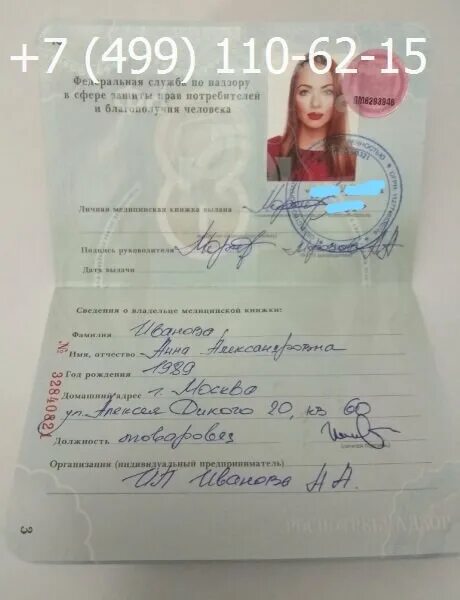 +7 (499) 110-62-15
Федеральная служба по надзору
в сфере защиты прав потребителей
и благополучия человека
Личная медицинская книжка выдана
Подпись руководителя
Дата выдачи
Сведения о владельце медицинской книжки:
Фамилия Иванова
Имя, отчество Анна Александровна
Год рождения 1989
Домашний адрес г. Москва
ул. Алексея Дикого 20, кв 60
Должность товаровед
Организация (индивидуальный предприниматель)
ИП Иванова А А.
РОСПОТРЕБНАДЗОР
3